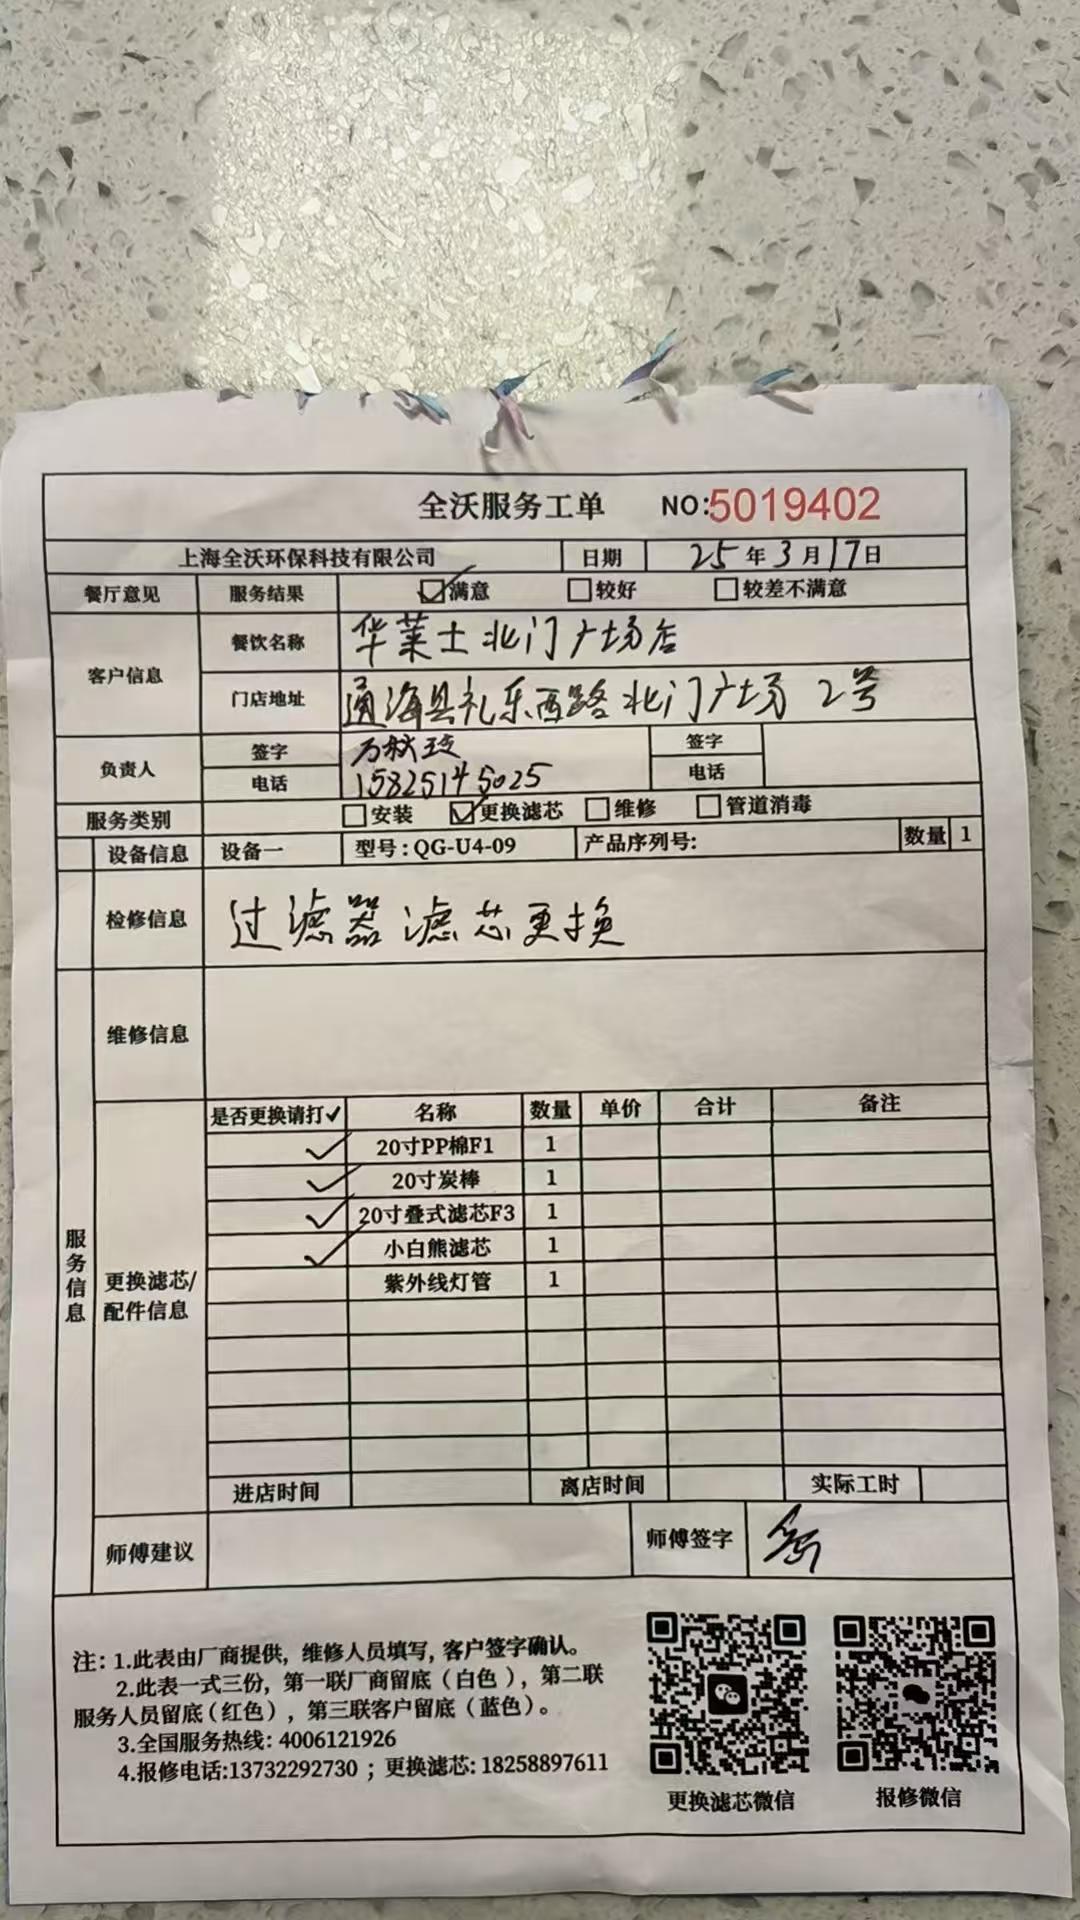 全沃服务工单 NO:5019402
上海全沃环保科技有限公司 日期 25年3月17日
餐厅意见 服务结果 满意 较好 较差不满意
客户信息 餐饮名称 华莱士北门广场店
门店地址 通海县礼乐西路北门广场2号
负责人 签字 万秋 签字
电话 15825145025 电话
服务类别 安装 更换滤芯 维修 管道消毒
设备信息 设备一 型号:QG-U4-09 产品序列号: 数量 1
检修信息 过滤器滤芯更换
维修信息
服务信息
更换滤芯/配件信息
是否更换请打✓ 名称 数量 单价 合计 备注
✓ 20寸PP棉F1 1
✓ 20寸炭棒 1
✓ 20寸叠式滤芯F3 1
✓ 小白熊滤芯 1
紫外线灯管 1
进店时间 离店时间 实际工时
师傅建议 师傅签字
注:1.此表由厂商提供,维修人员填写,客户签字确认。
2.此表一式三份,第一联厂商留底(白色),第二联
服务人员留底(红色),第三联客户留底(蓝色)。
3.全国服务热线:4006121926
4.报修电话:13732292730;更换滤芯:18258897611
更换滤芯微信 报修微信